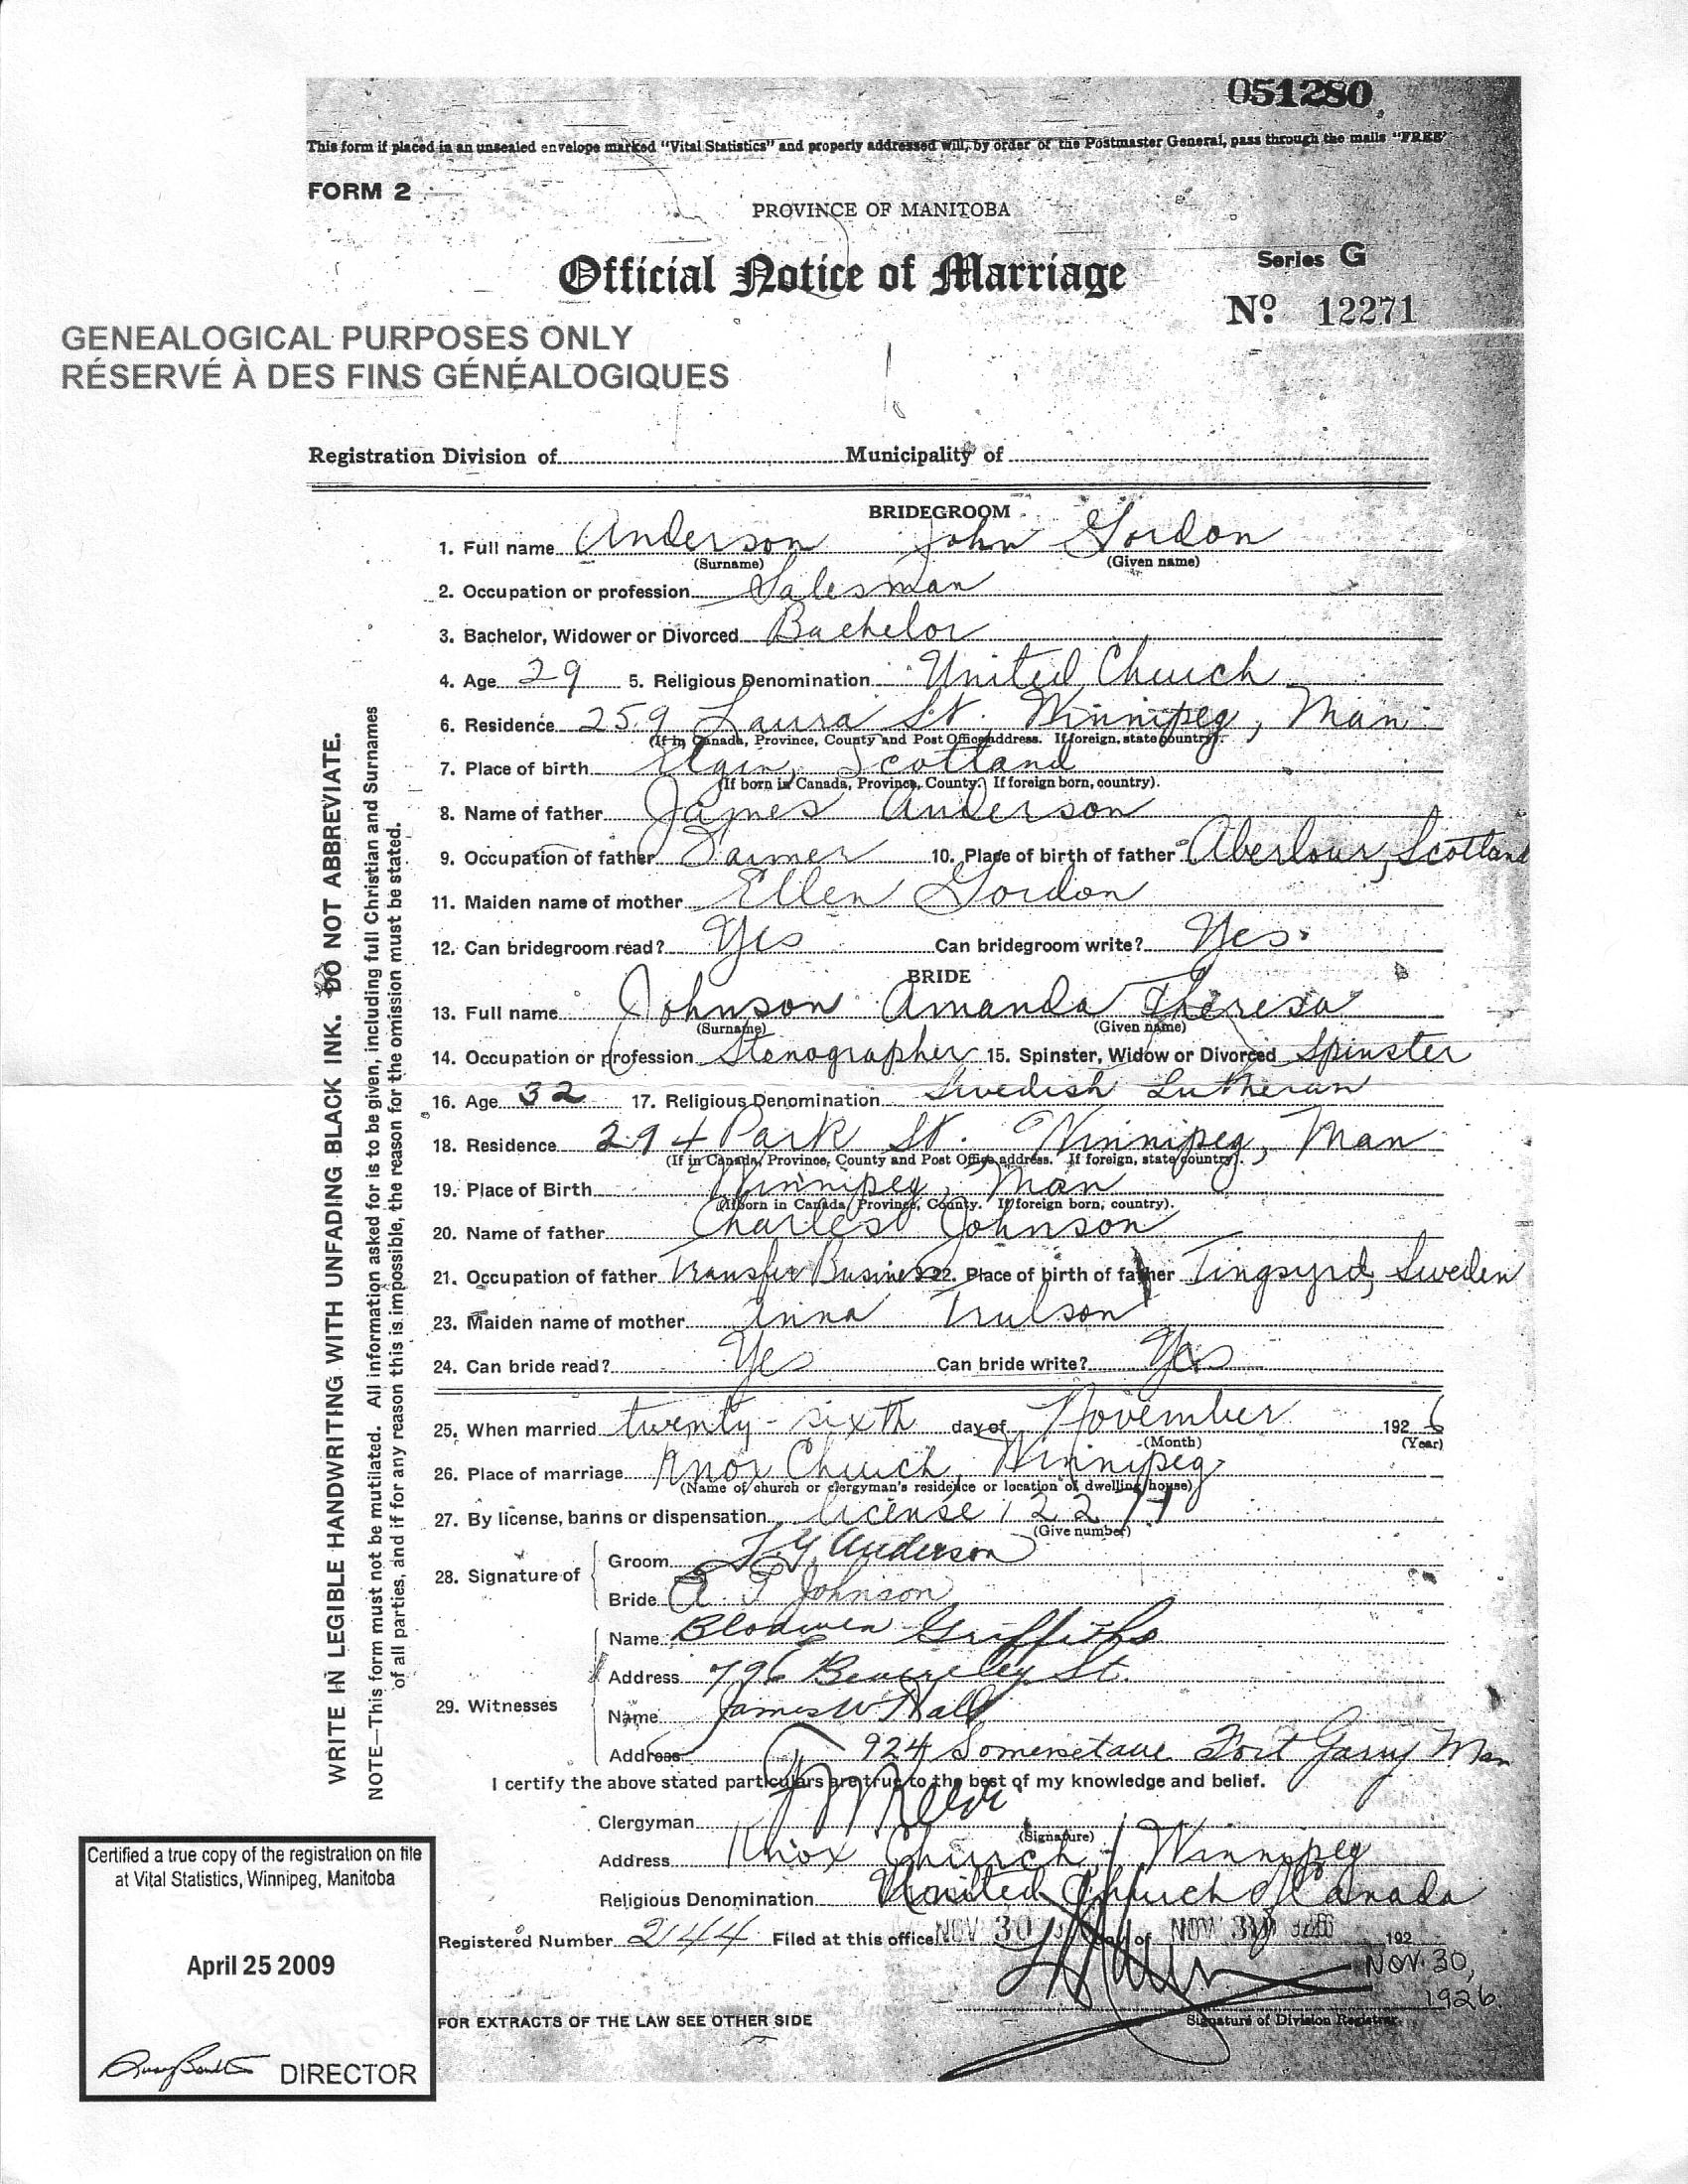 051280
This form if placed in an unsealed envelope marked "Vital Statistics" and properly addressed will, by order of the Postmaster General, pass through the mails "FREE"
FORM 2
PROVINCE OF MANITOBA
Official Notice of Marriage
Series G
No. 12271
GENEALOGICAL PURPOSES ONLY
RÉSERVÉ À DES FINS GÉNÉALOGIQUES
Registration Division of Municipality of
BRIDEGROOM
1. Full name Anderson John Gordon
(Surname) (Given name)
2. Occupation or profession Salesman
3. Bachelor, Widower or Divorced Bachelor
4. Age 29 5. Religious Denomination United Church
6. Residence 259 Laura St. Winnipeg, Man
(If in Canada, Province, County and Post Office address. If foreign, state country).
7. Place of birth Elgin, Scotland
(If born in Canada, Province, County. If foreign born, country).
8. Name of father James Anderson
9. Occupation of father Farmer 10. Place of birth of father Aberlour, Scotland
11. Maiden name of mother Ellen Gordon
12. Can bridegroom read? Yes Can bridegroom write? Yes.
BRIDE
13. Full name Johnson Amanda Theresa
(Surname) (Given name)
14. Occupation or profession Stenographer 15. Spinster, Widow or Divorced Spinster
16. Age 32 17. Religious Denomination Swedish Lutheran
18. Residence 294 Park St. Winnipeg, Man
(If in Canada, Province, County and Post Office address. If foreign, state country).
19. Place of Birth Winnipeg, Man
(If born in Canada, Province, County. If foreign born, country).
20. Name of father Charles Johnson
21. Occupation of father Transfer Business 22. Place of birth of father Tingsyrd, Sweden
23. Maiden name of mother Anna Trulson
24. Can bride read? Yes Can bride write? Yes
25. When married twenty-sixth day of November 1926
(Month) (Year)
26. Place of marriage Knox Church, Winnipeg
(Name of church or clergyman's residence or location of dwelling house)
27. By license, banns or dispensation license 12277
(Give number)
28. Signature of
Groom J. G. Anderson
Bride A. T. Johnson
29. Witnesses
Name Blodwen Griffiths
Address 796 Beverley St.
Name James W Hall
Address 924 Somerset ave Fort Garry Man
I certify the above stated particulars are true to the best of my knowledge and belief.
Clergyman
(Signature)
Address Knox Church, Winnipeg
Religious Denomination United Church of Canada
Registered Number 244 Filed at this office NOV 30 day of NOV 30 1926 192
NOV. 30,
1926.
Signature of Division Registrar.
FOR EXTRACTS OF THE LAW SEE OTHER SIDE
WRITE IN LEGIBLE HANDWRITING WITH UNFADING BLACK INK. DO NOT ABBREVIATE.
NOTE—This form must not be mutilated. All information asked for is to be given, including full Christian and Surnames
of all parties, and if for any reason this is impossible, the reason for the omission must be stated.
Certified a true copy of the registration on file
at Vital Statistics, Winnipeg, Manitoba
April 25 2009
DIRECTOR